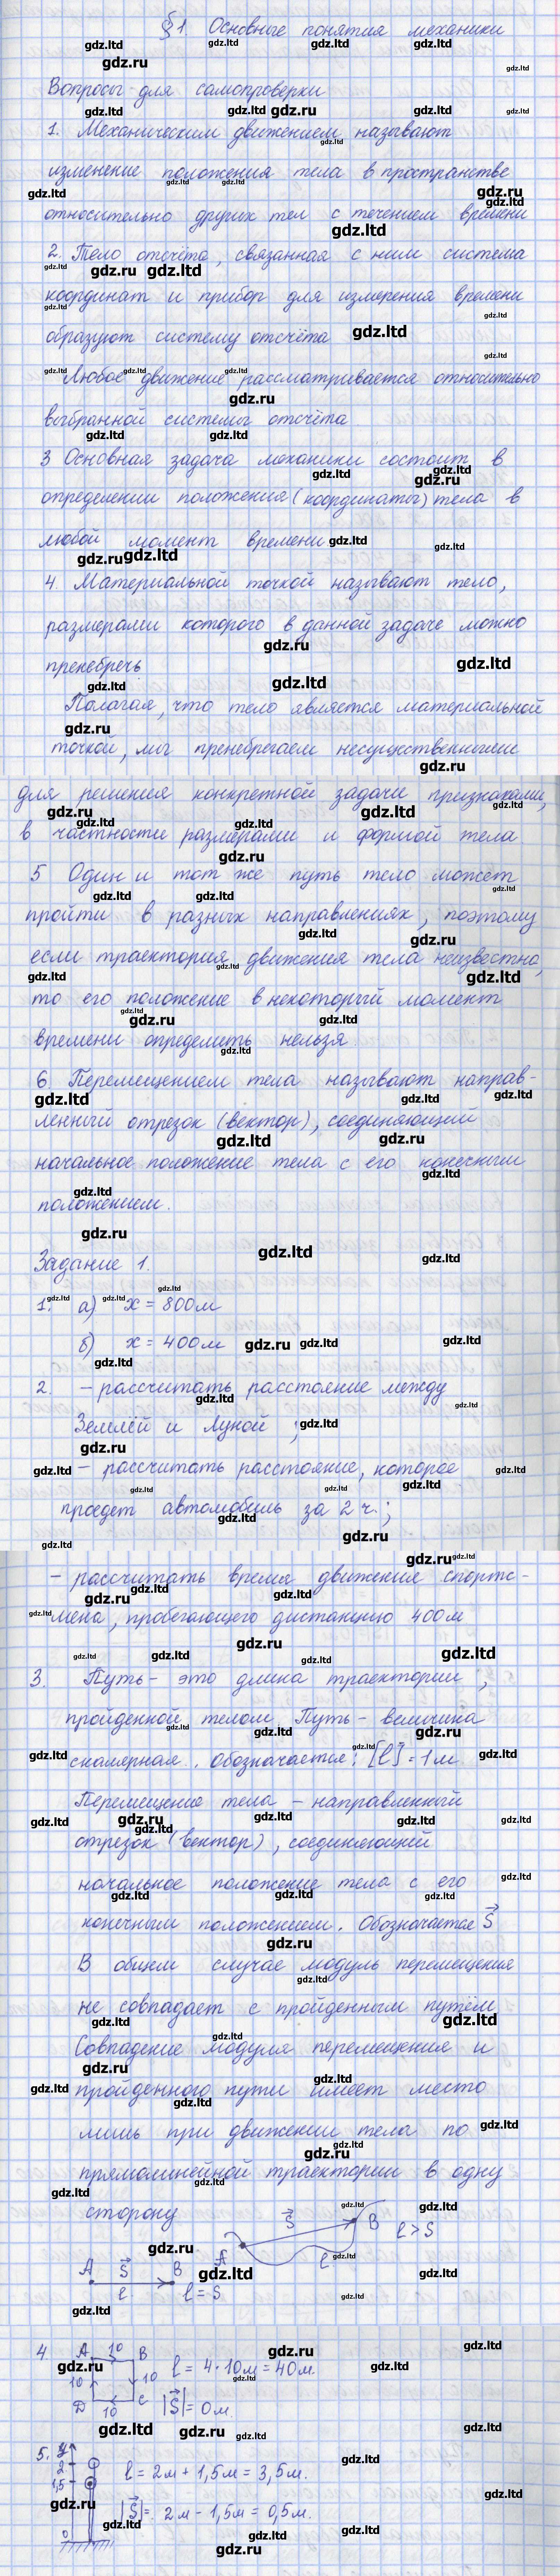 §1. Основные понятия механики
Вопросы для самопроверки
1. Механическим движением называют
изменение положения тела в пространстве
относительно других тел с течением времени
2. Тело отсчёта, связанная с ним система
координат и прибор для измерения времени
образуют систему отсчёта
Любое движение рассматривается относительно
выбранной системы отсчёта
3 Основная задача механики состоит в
определении положения (координаты) тела в
любой момент времени
4. Материальной точкой называют тело,
размерами которого в данной задаче можно
пренебречь
Полагая, что тело является материальной
точкой, мы пренебрегаем несущественными
для решения конкретной задачи признаками,
в частности размерами и формой тела
5 Один и тот же путь тело может
пройти в разных направлениях, поэтому
если траектория движения тела неизвестна,
то его положение в некоторый момент
времени определить нельзя.
6 Перемещением тела называют направ-
ленный отрезок (вектор), соединяющий
начальное положение тела с его конечным
положением.
Задание 1.
1. а) x = 800м
б) x = 400м
2. – рассчитать расстояние между
Землёй и Луной ;
– рассчитать расстояние, которое
проедет автомобиль за 2 ч. ;
– рассчитать время движения спортс-
мена, пробегающего дистанцию 400м
3. Путь – это длина траектории ,
пройденной телом Путь – величина
скалярная. Обозначается: [l] = 1м
Перемещение тела – направленный
отрезок (вектор), соединяющий
начальное положение тела с его
конечным положением. Обозначается S⃗
В общем случае модуль перемещения
не совпадает с пройденным путём
Совпадение модуля перемещения и
пройденного пути имеет место
лишь при движении тела по
прямолинейной траектории в одну
сторону
A S⃗ B l l = S
A S⃗ B l l > S
4 A 10 B 10 C 10 D 10
l = 4·10м = 40м.
|S⃗| = 0м.
5. y 2 1,5 0
l = 2м + 1,5м = 3,5м.
|S⃗| = 2м – 1,5м = 0,5м.
gdz.ltd
gdz.ru